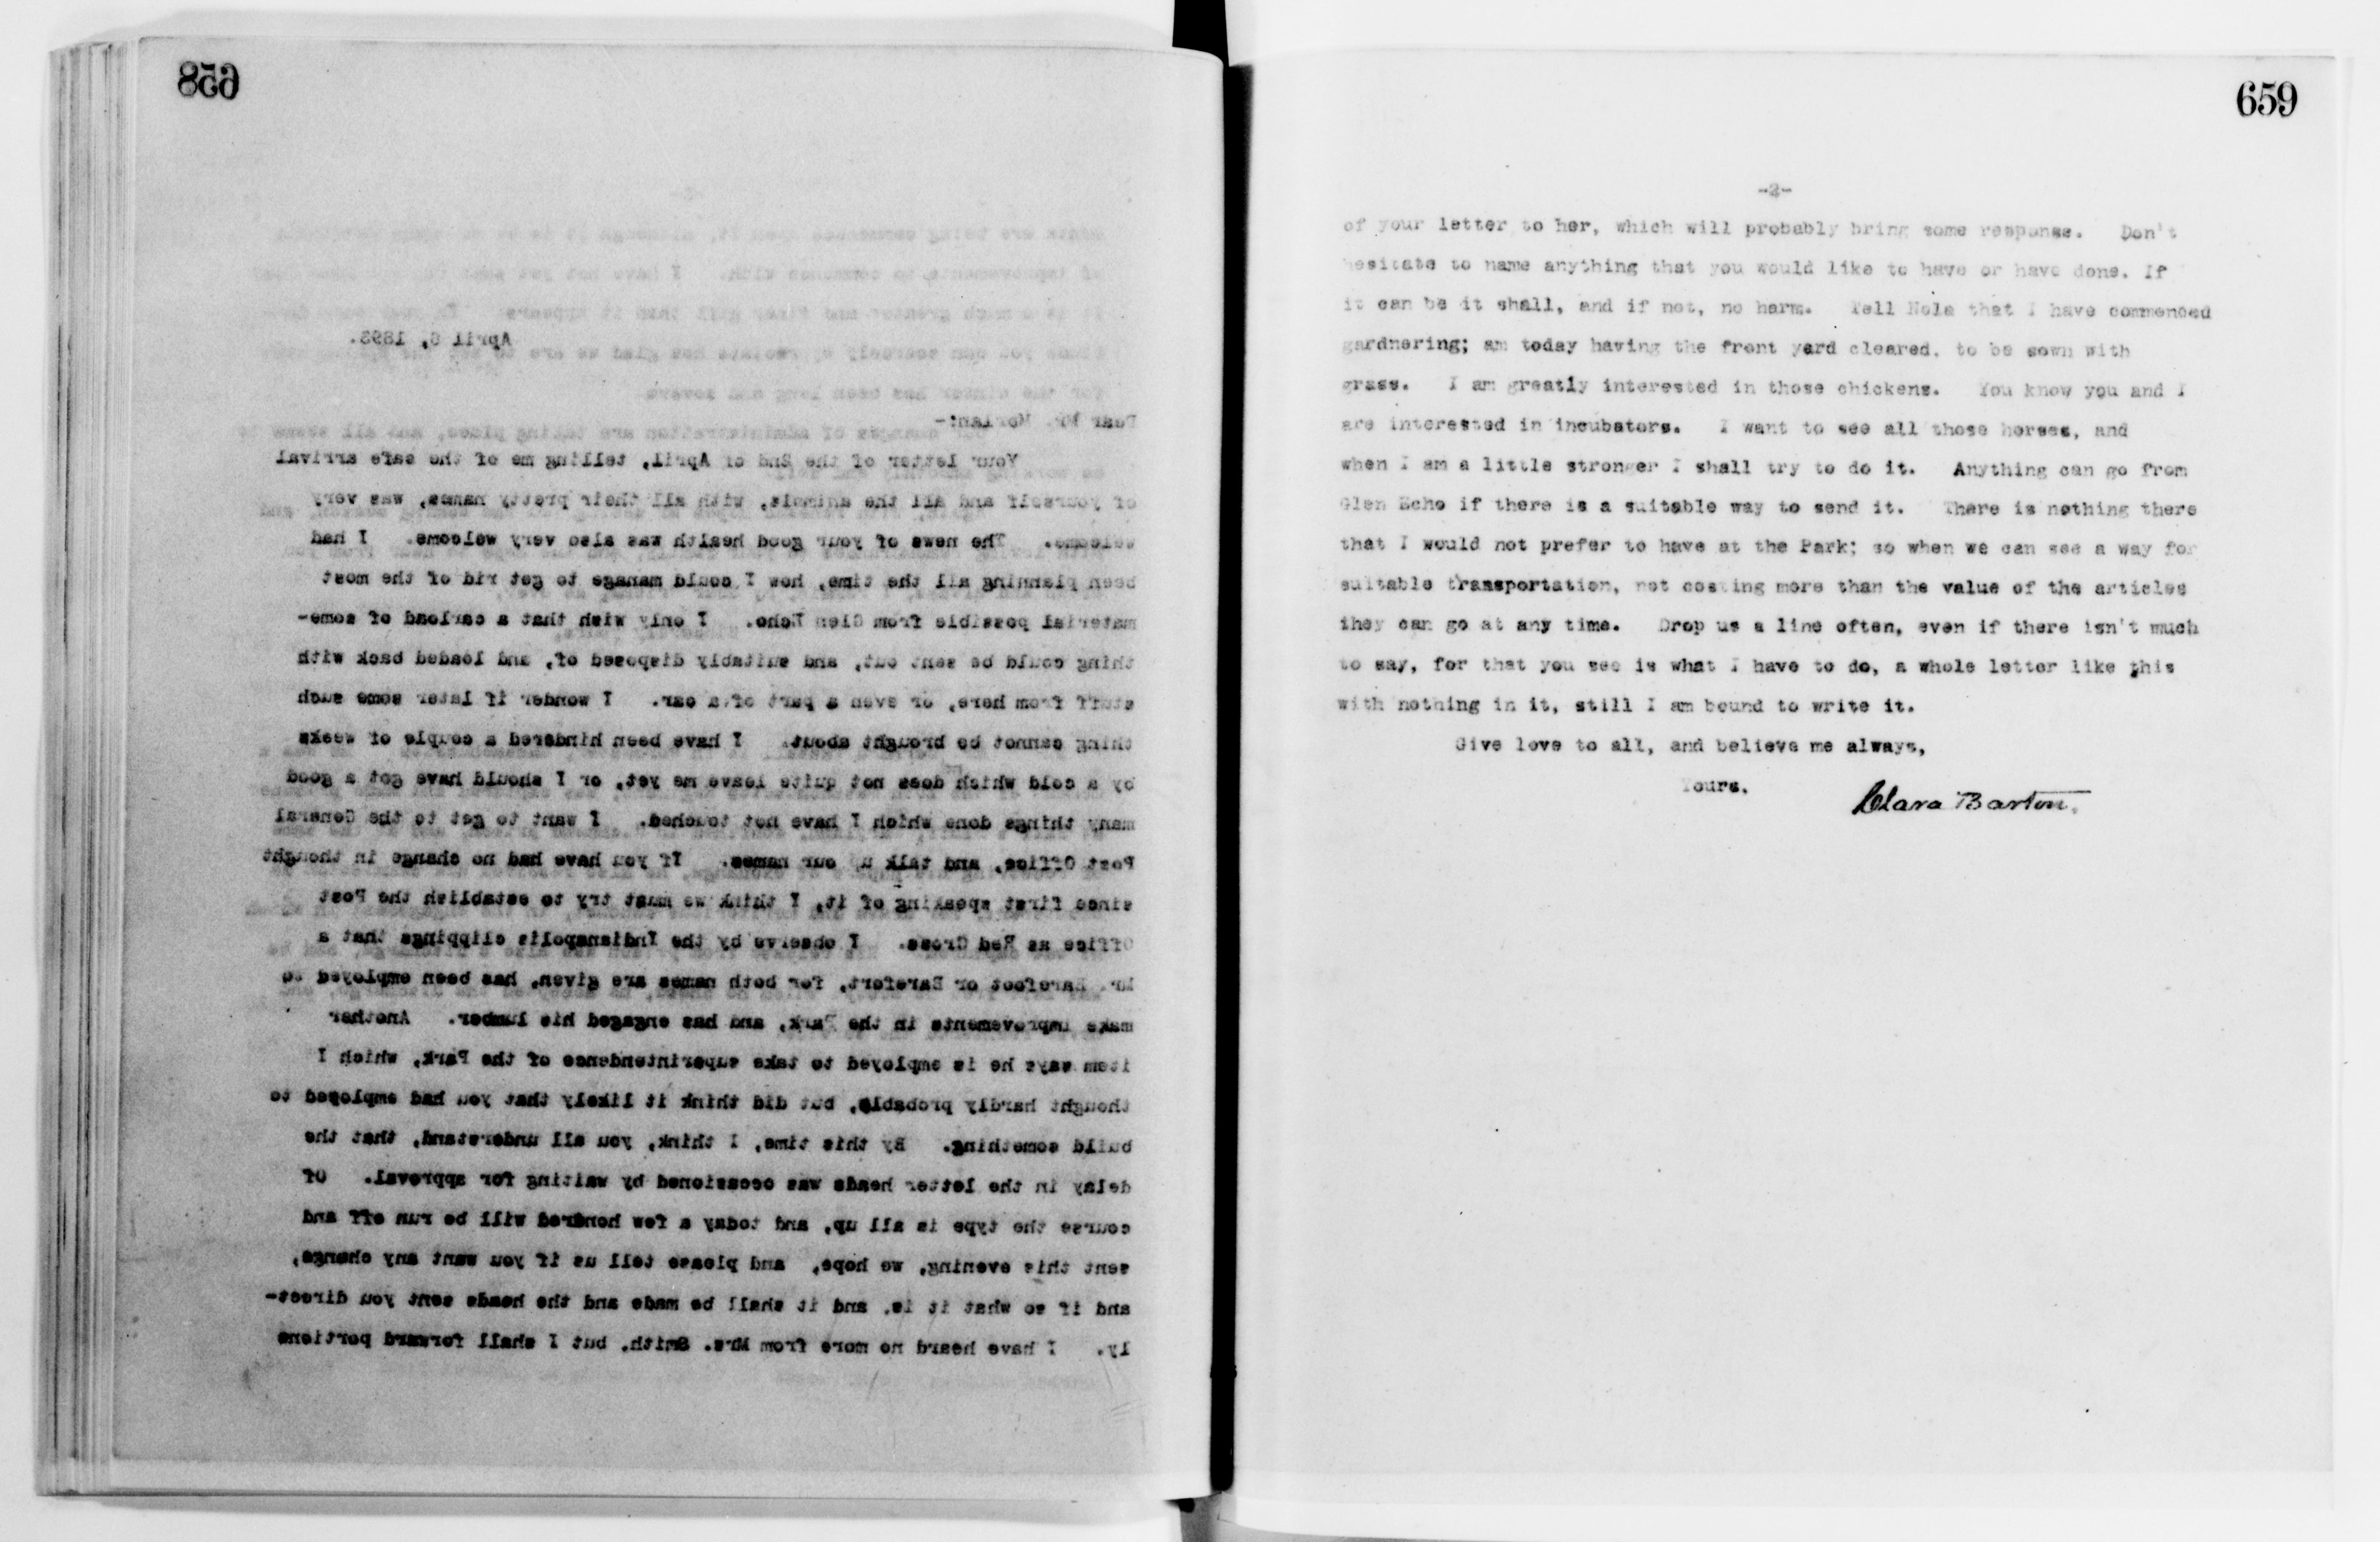 658
April 6, 1893.
Dear Mr. Morlan:-
Your letter of the 2nd of April, telling me of the safe arrival
of yourself and all the animals, with all their pretty names, was very
welcome. The news of your good health was also very welcome. I had
been planning all the time, how I could manage to get rid of the most
material possible from Glen Echo. I only wish that a carload of some-
thing could be sent out, and suitably disposed of, and loaded back with
stuff from here, or even a part of a car. I wonder if later some such
thing cannot be brought about. I have been hindered a couple of weeks
by a cold which does not quite leave me yet, or I should have got a good
many things done which I have not touched. I want to get to the General
Post Office, and talk up our names. If you have had no change in thought
since first speaking of it, I think we must try to establish the Post
Office as Red Cross. I observe by the Indianapolis clippings that a
Mr. Barefoot or Barefort, for both names are given, has been employed to
make improvements in the Park, and has engaged his lumber. Another
item says he is employed to take superintendence of the Park, which I
thought hardly probable, but did think it likely that you had employed to
build something. By this time, I think, you all understand, that the
delay in the letter heads was occasioned by waiting for approval. Of
course the type is all up, and today a few hundred will be run off and
sent this evening, we hope, and please tell us if you want any change,
and if so what it is, and it shall be made and the heads sent you direct-
ly. I have heard no more from Mrs. Smith, but I shall forward portions
659
-2-
of your letter to her, which will probably bring some response. Don't
hesitate to name anything that you would like to have or have done. If
it can be it shall, and if not, no harm. Tell Nola that I have commenced
gardnering; am today having the front yard cleared, to be sown with
grass. I am greatly interested in those chickens. You know you and I
are interested in incubators. I want to see all those horses, and
when I am a little stronger I shall try to do it. Anything can go from
Glen Echo if there is a suitable way to send it. There is nothing there
that I would not prefer to have at the Park; so when we can see a way for
suitable transportation, not costing more than the value of the articles
they can go at any time. Drop us a line often, even if there isn't much
to say, for that you see is what I have to do, a whole letter like this
with nothing in it, still I am bound to write it.
Give love to all, and believe me always,
Yours,
Clara Barton.